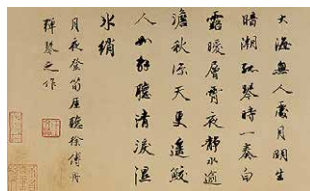 大海無人處月明生
暗潮孤琴時一奏白
露暖層霄夜靜水逾
澹秋深天更遙鮫
人如好聽清淚濕
水綃
月夜登笛屋聽徐傅
彈琴之作